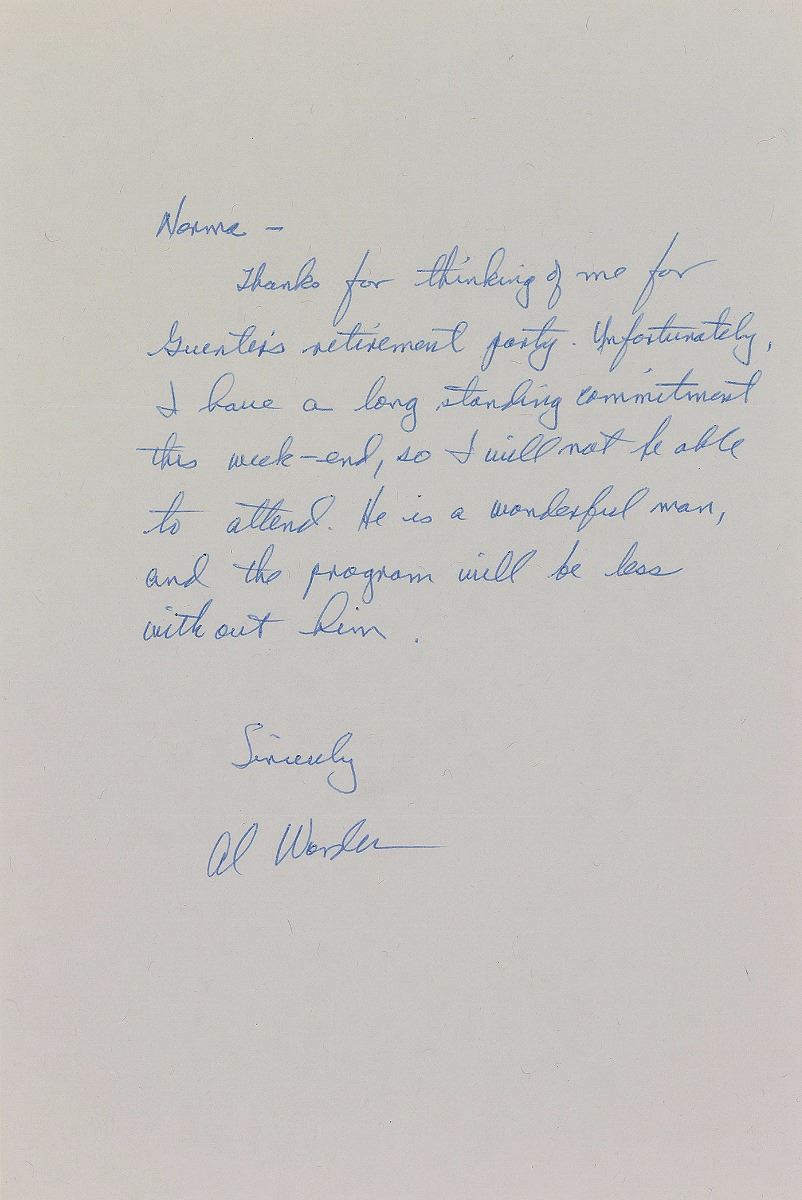 Norma —
Thanks for thinking of me for
Guenter's retirement party. Unfortunately,
I have a long standing commitment
this week-end, so I will not be able
to attend. He is a wonderful man,
and the program will be less
without him.
Sincerely
Al Worden